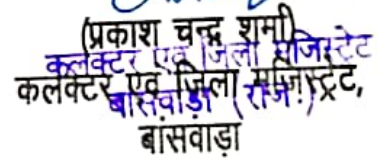 (प्रकाश चन्द्र शर्मा)
कलक्टर एवं जिला मजिस्ट्रेट
कलक्टर एवं जिला मजिस्ट्रेट,
बांसवाड़ा (राज.)
बांसवाड़ा